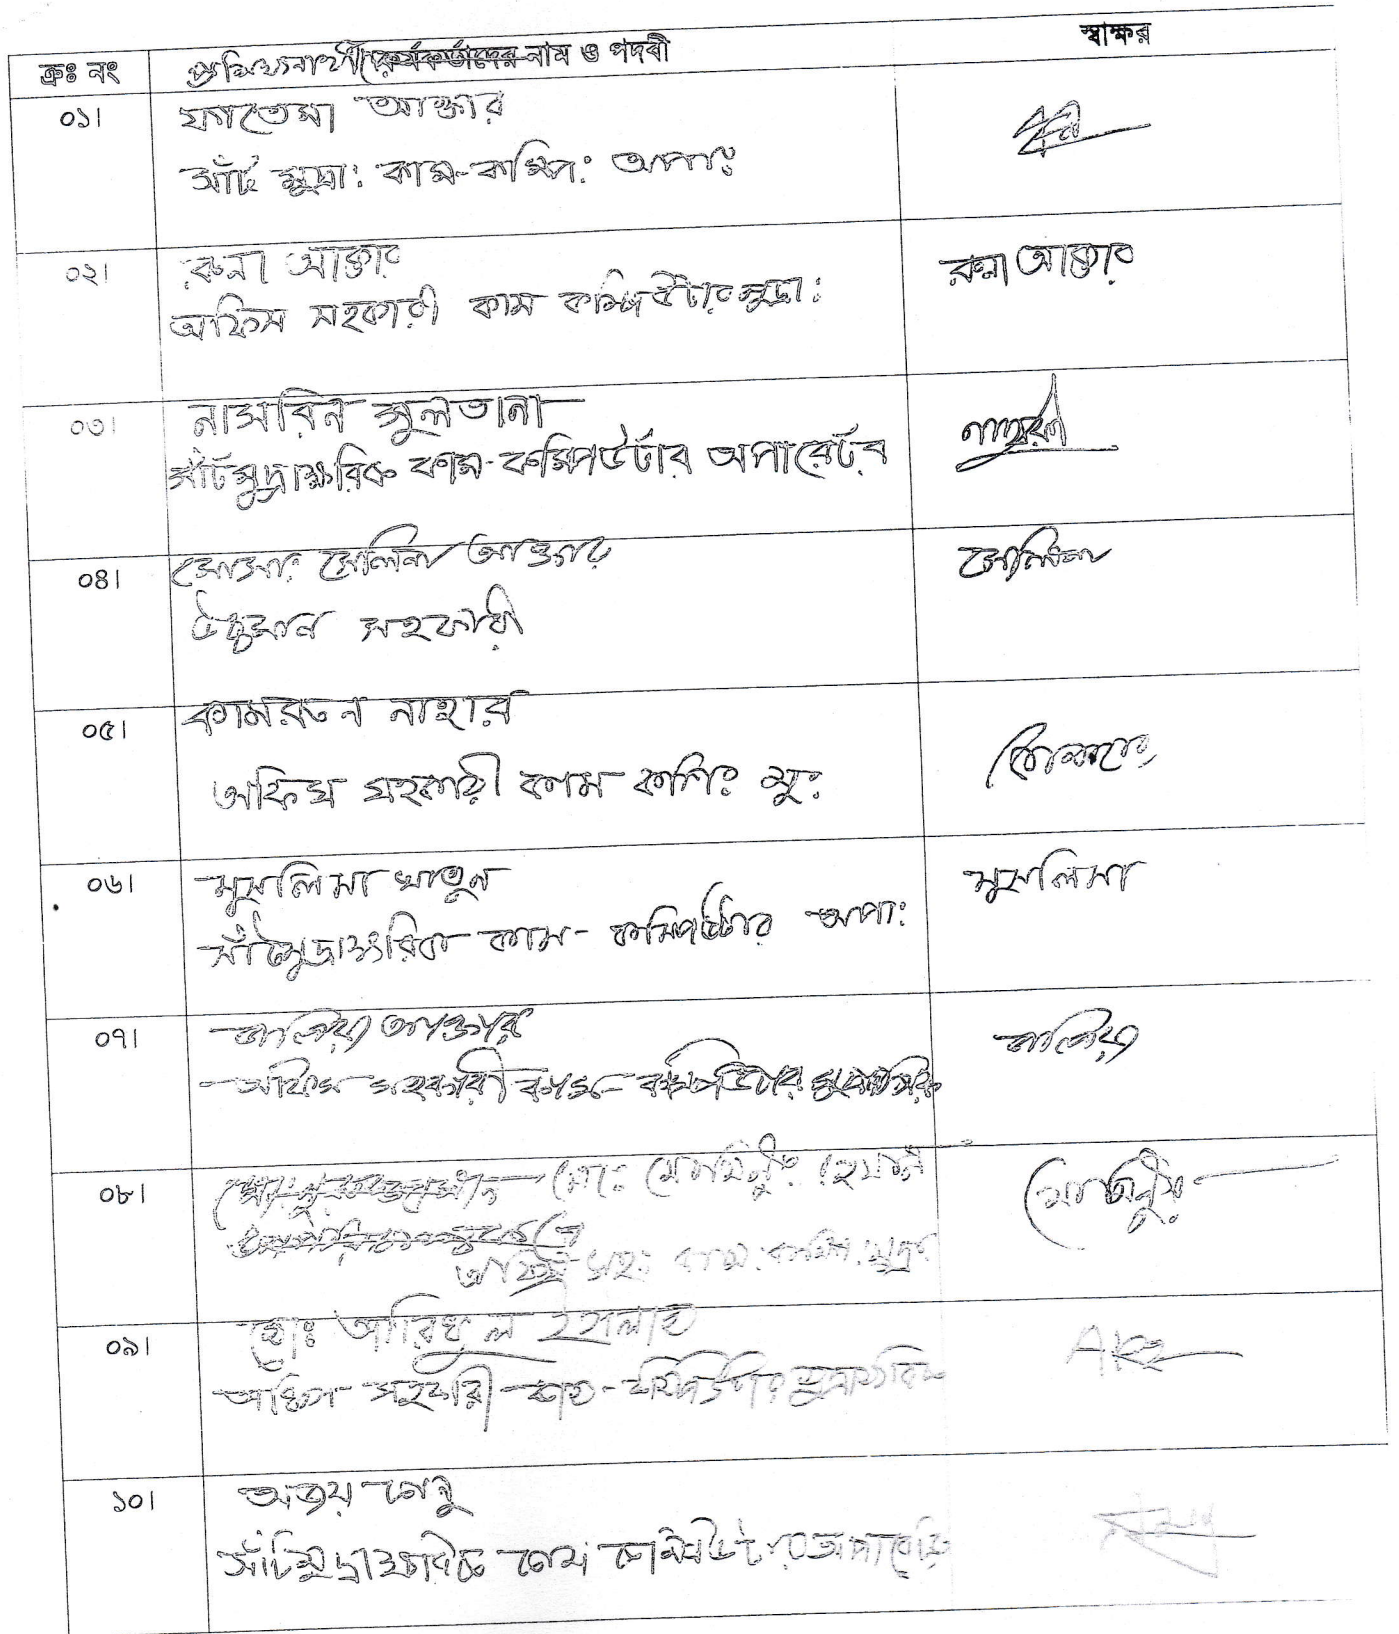 ক্রঃ নং প্রশিক্ষনার্থীদের কর্মকর্তাদের নাম ও পদবী স্বাক্ষর
০১। ফাতেমা আক্তার
সাঁট মুদ্রা: কাম-কম্পি: অপাঃ
০২। রুনা আক্তার রুনা আক্তার
অফিস সহকারী কাম কম্পিউটার মুদ্রা:
০৩। নাসরিন সুলতানা
সাঁটমুদ্রাক্ষরিক কাম-কম্পিউটার অপারেটর
০৪। মোসাঃ সেলিনা আক্তার সেলিনা
উচ্চমান সহকারী
০৫। কামরুন নাহার
অফিস সহকারী কাম কম্পিঃ মুঃ
০৬। মুসলিমা খাতুন মুসলিমা
সাঁটমুদ্রাক্ষরিক কাম-কম্পিউটার অপা:
০৭। আক্তার
অফিস সহকারী কাম-কম্পিউটার মুদ্রাক্ষরিক
০৮। মোঃ
অফিস সহঃ কাম:কম্পি:মুদ্রা
০৯। মোঃ আরিফুল ইসলাম
অফিস সহকারী কাম-কম্পিউটার মুদ্রাক্ষরিক
১০।
সাঁটমুদ্রাক্ষরিক কাম কম্পিউটার অপারেটর